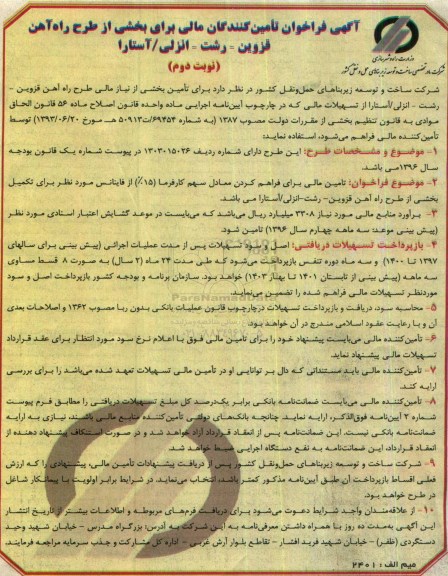 آگهی فراخوان تأمین‌کنندگان مالی برای بخشی از طرح راه‌آهن
قزوین - رشت - انزلی/آستارا
(نوبت دوم)
شرکت ساخت و توسعه زیربناهای حمل‌ونقل کشور در نظر دارد برای تأمین بخشی از نیاز مالی طرح راه آهن قزوین -
رشت - انزلی/آستارا از تسهیلات مالی که در چارچوب آیین‌نامه اجرایی ماده واحده قانون اصلاح ماده ۵۶ قانون الحاق
موادی به قانون تنظیم بخشی از مقررات دولت مصوب ۱۳۸۷ (به شماره ۶۹۴۵۴/ت۵۰۹۱۳هـ مورخ ۱۳۹۳/۰۶/۲۰) توسط
تأمین‌کننده مالی فراهم می‌شود، استفاده نماید:
۱- موضوع و مشخصات طرح: این طرح دارای شماره ردیف ۱۳۰۳۰۱۵۰۲۶ در پیوست شماره یک قانون بودجه
سال ۱۳۹۶می باشد.
۲- موضوع فراخوان: تامین مالی برای فراهم کردن معادل سهم کارفرما (۱۵٪) از فاینانس مورد نظر برای تکمیل
بخشی از طرح راه آهن قزوین- رشت-انزلی/آستارا می باشد.
۳- برآورد منابع مالی مورد نیاز ۳۳۰۸ میلیارد ریال می‌باشد که می‌بایست در موعد گشایش اعتبار اسنادی مورد نظر
(پیش بینی موعد: سه ماهه چهارم سال ۱۳۹۶) تامین شود.
۴- بازپرداخت تسهیلات دریافتی: اصل و سود تسهیلات پس از مدت عملیات اجرائی (پیش بینی برای سالهای
۱۳۹۷ تا ۱۴۰۰) و سه ماه دوره تنفس بازپرداخت می‌شود که طی مدت ۲۴ ماه (۲ سال) به صورت ۸ قسط مساوی
سه ماهه (پیش بینی از تابستان ۱۴۰۱ تا بهار ۱۴۰۳) خواهد بود. سازمان برنامه و بودجه کشور بازپرداخت اصل و سود
موردنظر تسهیلات مالی فراهم شده را تضمین می‌نماید.
۵- محاسبه سود، دریافت و بازپرداخت تسهیلات درچارچوب قانون عملیات بانکی بدون ربا مصوب ۱۳۶۲ و اصلاحات بعدی
آن و با رعایت عقود اسلامی مندرج در آن خواهد بود.
۶- تأمین‌کننده مالی می‌بایست پیشنهاد خود را برای تأمین مالی فوق با اعلام نرخ سود مورد انتظار برای عقد قرارداد
تسهیلات مالی پیشنهاد نماید.
۷- تأمین‌کننده مالی باید مستنداتی که دال بر توانایی او در تأمین مالی تسهیلات تعهد شده می‌باشد را برای بررسی
ارایه کند.
۸- تأمین‌کننده مالی می‌بایست ضمانت‌نامه بانکی برابر یک‌درصد کل مبلغ تسهیلات دریافتی را مطابق فرم پیوست
شماره ۲ آیین‌نامه فوق‌الذکر، ارایه نماید. چنانچه بانک‌های دولتی تأمین‌کننده منابع مالی باشند، نیازی به ارایه
ضمانت‌نامه بانکی نیست. این ضمانت‌نامه پس از انعقاد قرارداد آزاد خواهد شد و در صورت استنکاف پیشنهاد دهنده از
انعقاد قرارداد، این ضمانت‌نامه به نفع دستگاه اجرایی ضبط خواهد شد.
۹- شرکت ساخت و توسعه زیربناهای حمل‌ونقل کشور پس از دریافت پیشنهادات تأمین مالی، پیشنهادی را که ارزش
فعلی اقساط بازپرداخت آن طبق آیین‌نامه مذکور کمتر باشد، انتخاب می‌نماید. در شرایط برابر اولویت با پیمانکار شاغل
در طرح خواهد بود.
۱۰- از علاقه‌مندان واجد شرایط دعوت می‌شود برای دریافت فرم‌های مربوطه و اطلاعات بیشتر از تاریخ انتشار
این آگهی به‌مدت ده روز با همراه داشتن معرفی‌نامه به این شرکت به آدرس: بزرگراه مدرس - خیابان شهید وحید
دستگردی (ظفر) - خیابان شهید فرید افشار - تقاطع بلوار آرش غربی - اداره کل مشارکت و جذب سرمایه مراجعه فرمایند.
میم الف: ۲۴۰۱